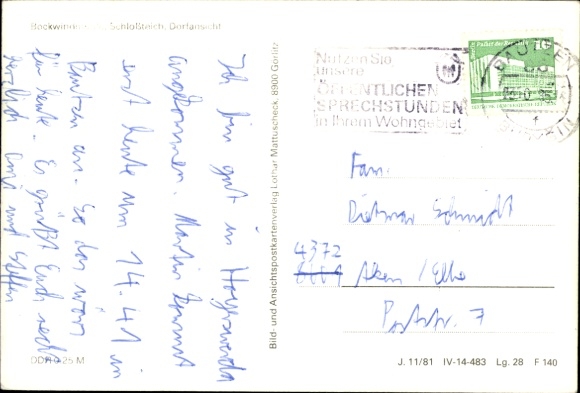 Bockwinde Schloßteich, Dorfansicht
Ich bin gut in Hoyerswerda
angekommen. Martin kommt
erst heute um 14.41 in
Bautzen an. So das wärs
für heute. Es grüßt Euch recht
herzlich und Steffen
DDR 0,25 M
Bild- und Ansichtspostkartenverlag Lothar Mattuscheck, 8900 Görlitz
Nutzen Sie
unsere
ÖFFENTLICHEN
SPRECHSTUNDEN
in Ihrem Wohngebiet
BAUTZEN
10
Fam.
Dietmar Schmidt
4372
Aken / Elbe
Poststr. 7
J. 11/81 IV-14-483 Lg. 28 F 140